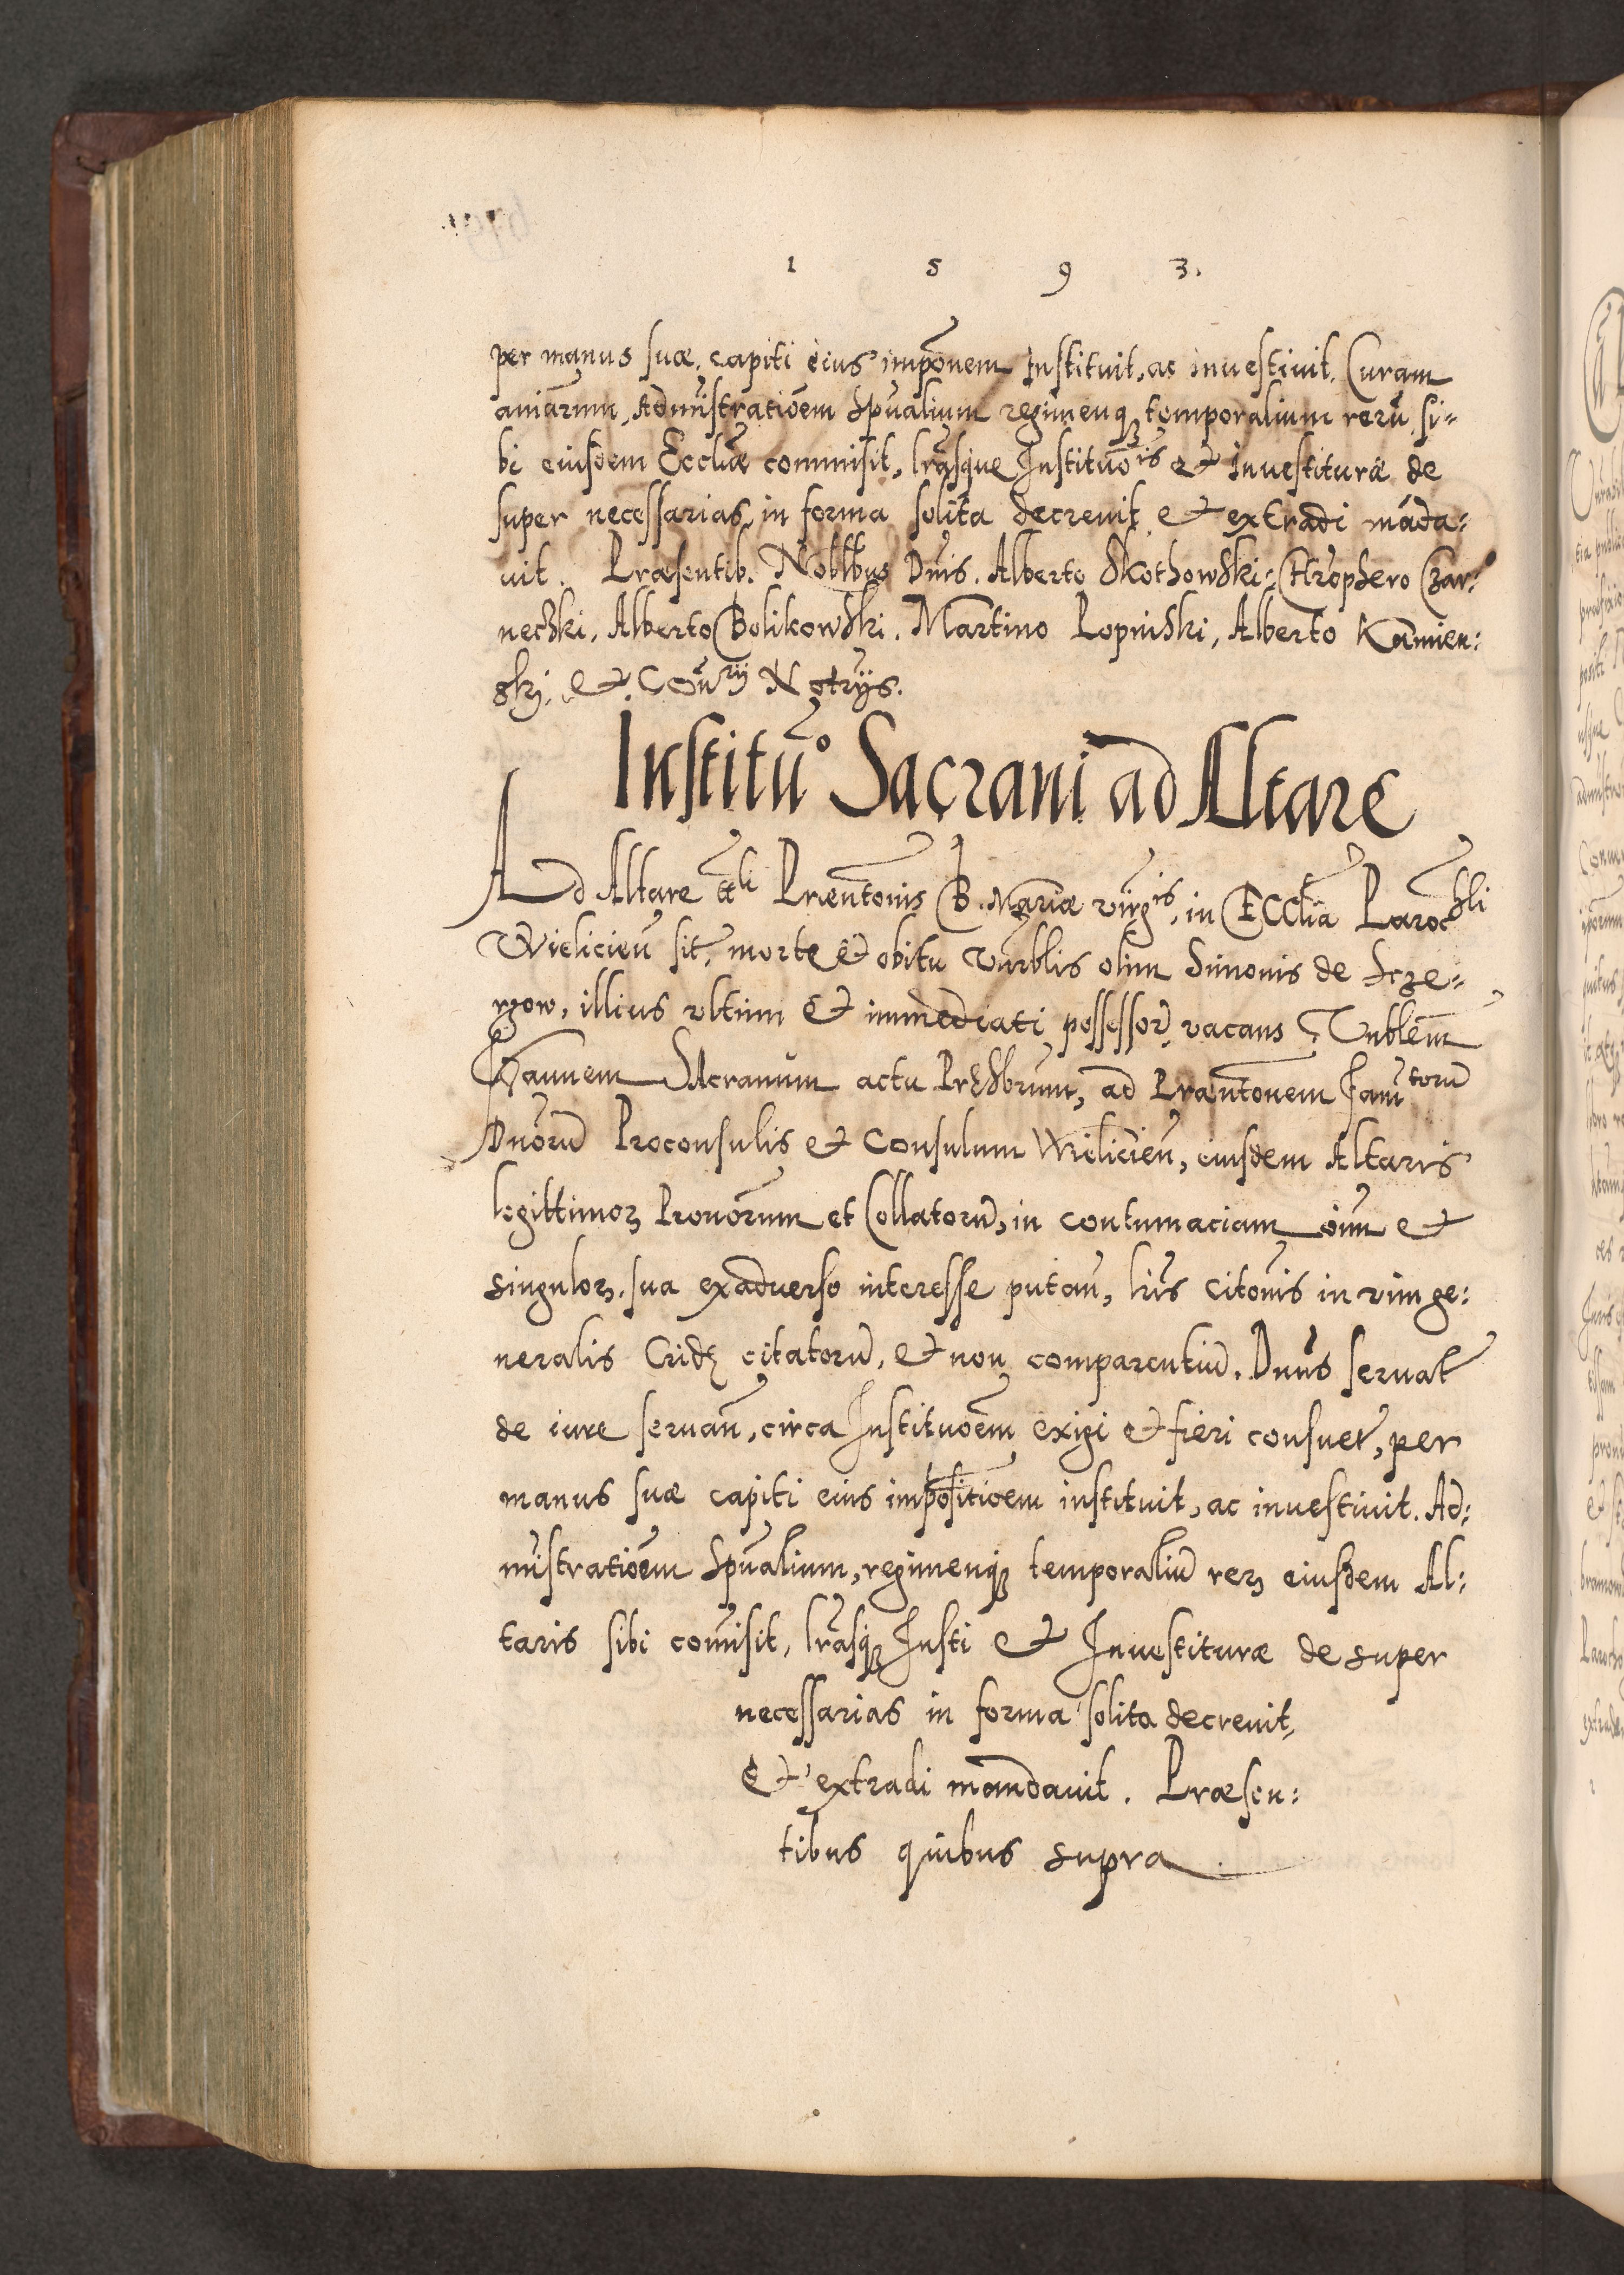 1 5 9 3.
per manus suæ capiti eius impōnem Instituit, ac inuestiuit. Curam
aniārum, Admīstratiōem Spūalium regimenq₃ temporalium rerū, si⸗
bi eiusdem Eccliæ commisit, lrāsque Instituōis et Inuestituræ de
super necessarias in forma solita decreuit et extradi māda⸗
uit. Præsentib. Noblbus Dnīs. Alberto Skothowski: Chrōphero Czar⸗
necżki, Alberto Bolikowski, Martino Lopinski, Alberto Kamien⸗
ski, et Conrij Notrijs.
Institūo Sacrani ad Altare
Ad Altare ttli Præntonis B. Mariæ virgis, in Ecclia Parochli
Vielicień sit, morte et obitu Vnrblis olim Simonis de Scze⸗
rzow, illius vltimi et immediati possessor, vacans Vnblem
Joannem Sacranum actu Præsbrum, ad Præntonem Famtorū
Dnorū Proconsulis et Consulum Wielicień, eiusdem Altaris
legittimoꝝ Pronorum et Collatorū, in contumaciam oīum et
singuloꝝ. sua exaduerso interesse putań, lris citonis in vim ge⸗
neralis Cridæ citatorū, et non comparentiū. Dnus seruat
de iure seruań, circa Instituoem exigi et fieri consuet, per
manus suæ capiti eius impositioem instituit, ac inuestiuit. Ad⸗
mīstratioem Spūalium, regimenq₃ temporaliū reꝝ eiusdem Al⸗
taris sibi comīsit, lrāsq₃ Insti et Inuestituræ de super
necessarias in forma solita decreuit,
et extradi mandauit. Præsen⸗
tibus quibus supra